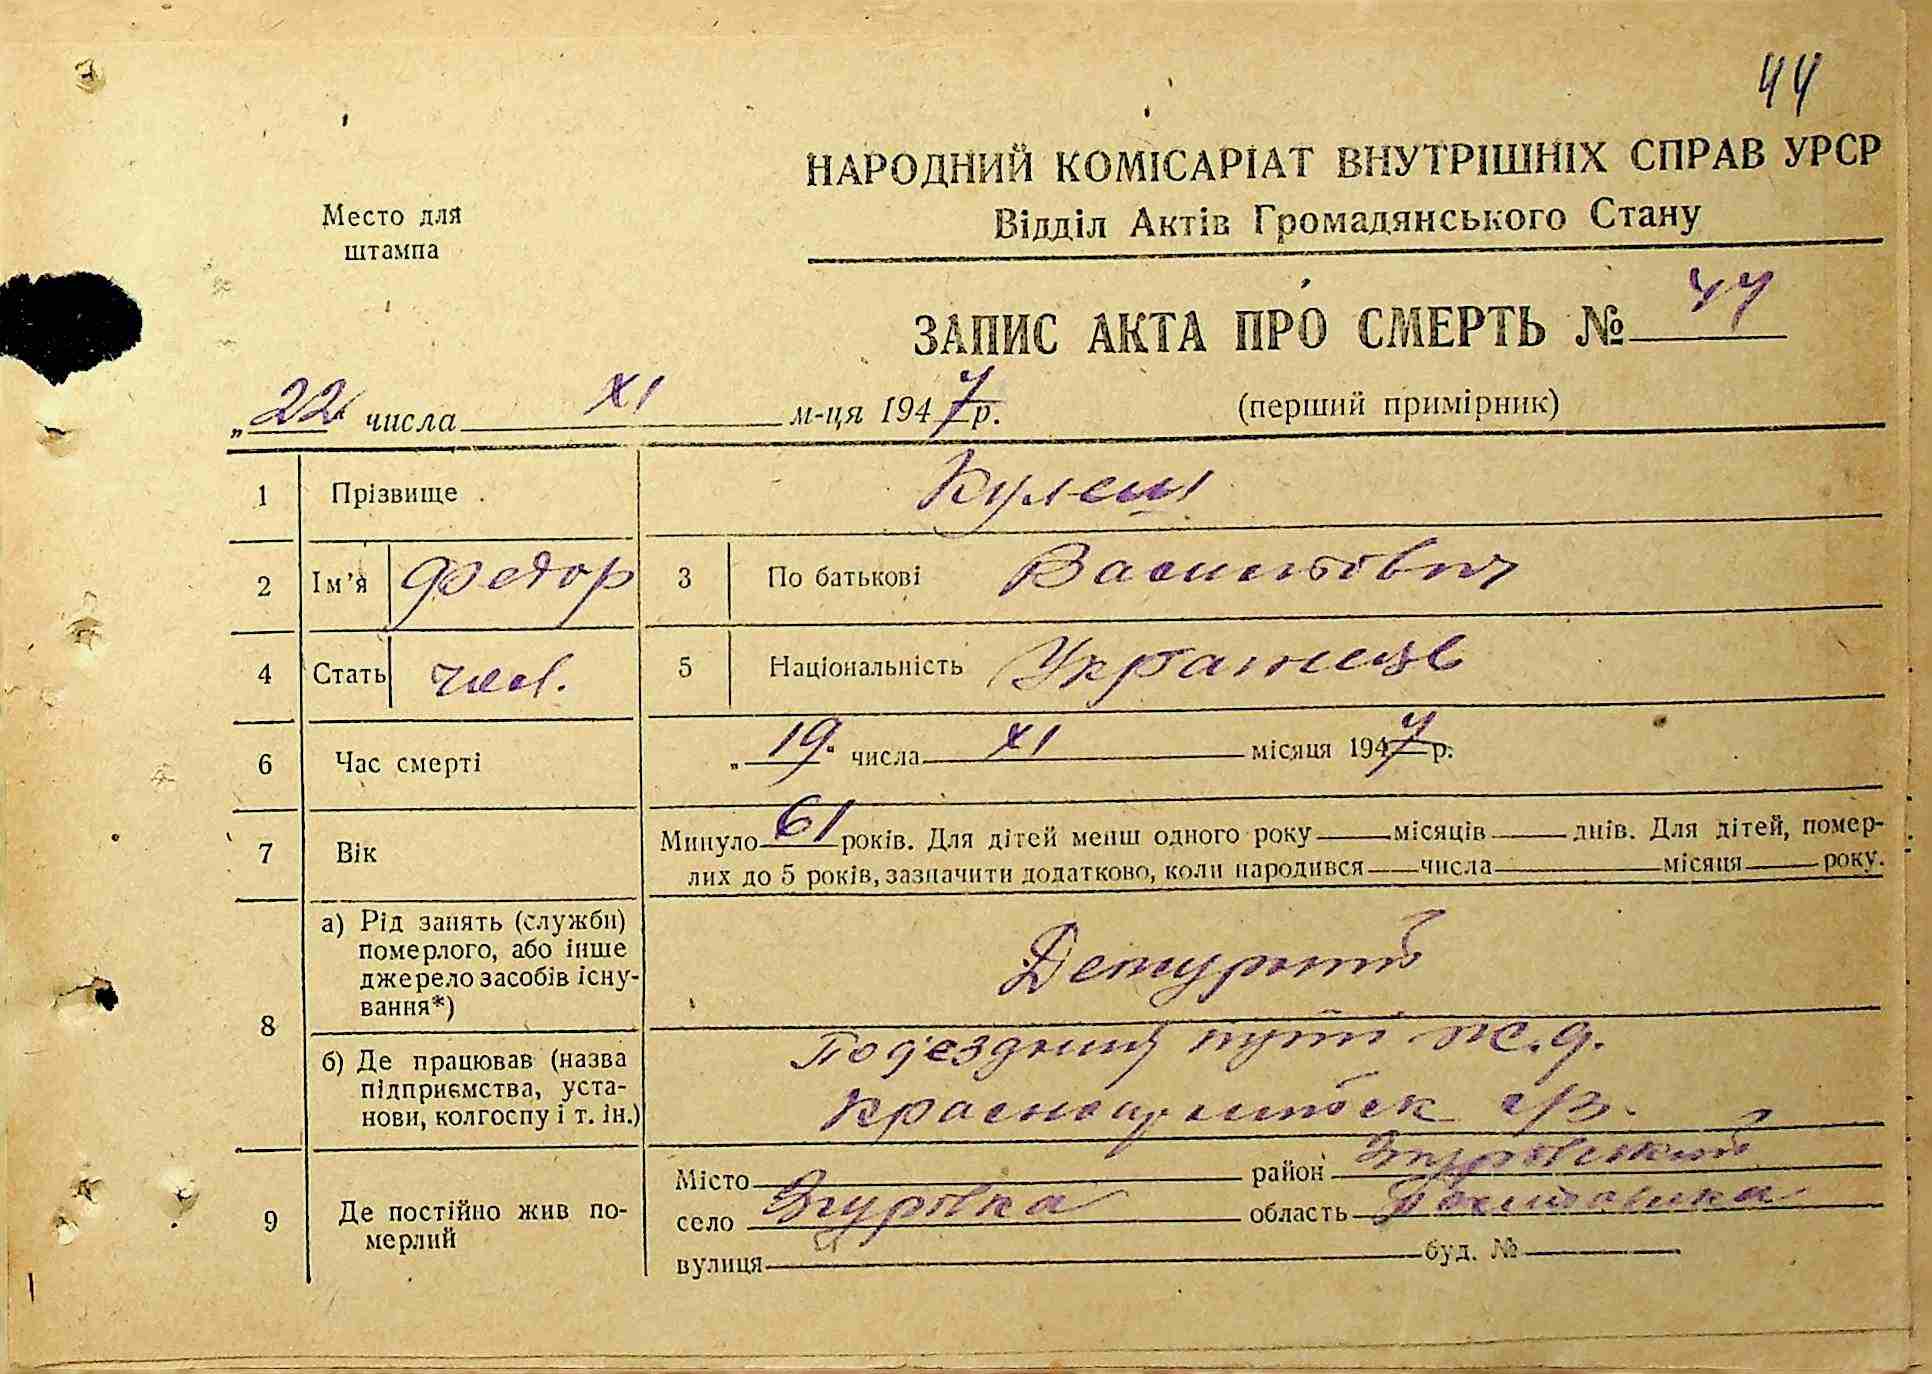 44
НАРОДНИЙ КОМІСАРІАТ ВНУТРІШНІХ СПРАВ УРСР
Відділ Актів Громадянського Стану
Место для
штампа
ЗАПИС АКТА ПРО СМЕРТЬ № 44
„22 числа XI м-ця 1947 р.
(перший примірник)
1 Прізвище Кулеш
2 Ім'я Федор 3 По батькові Васильович
4 Стать чол. 5 Національність Украінець
6 Час смерті „19. числа XI місяця 1947 р.
7 Вік Минуло 61 років. Для дітей менш одного року місяців днів. Для дітей, помер-
лих до 5 років, зазначити додатково, коли народився числа місяця року.
8 а) Рід занять (служби)
померлого, або інше
джерело засобів існу-
вання*)
Дежурний
б) Де працював (назва
підприємства, уста-
нови, колгоспу і т. ін.)
Под'ездний путі ж.д.
с/з.
9 Де постійно жив по-
мерлий
Місто район Згуровский
село Згуровка область Полтавська
вулиця буд. №